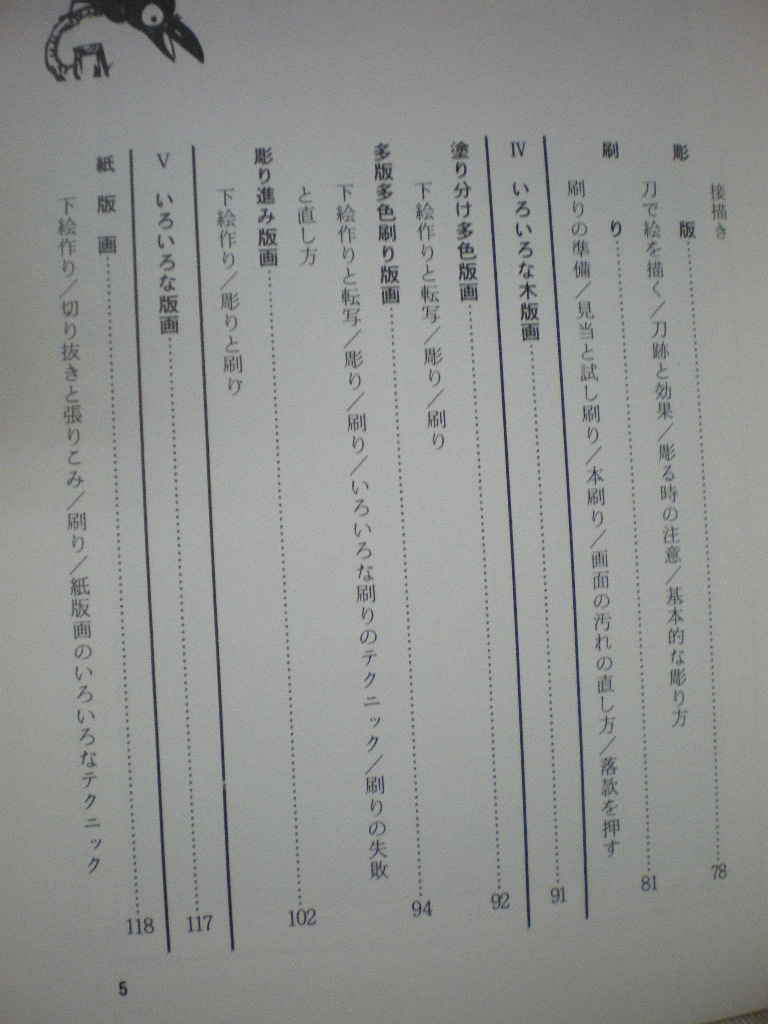 接描き
彫版……78
刀で絵を描く／刀跡と効果／彫る時の注意／基本的な彫り方
刷り……81
刷りの準備／見当と試し刷り／本刷り／画面の汚れの直し方／落款を押す
Ⅳ いろいろな木版画……91
塗り分け多色版画……92
下絵作りと転写／彫り／刷り
多版多色刷り版画……94
下絵作りと転写／彫り／刷り／いろいろな刷りのテクニック／刷りの失敗
と直し方
彫り進み版画……102
下絵作り／彫りと刷り
Ⅴ いろいろな版画……117
紙版画……118
下絵作り／切り抜きと張りこみ／刷り／紙版画のいろいろなテクニック
5